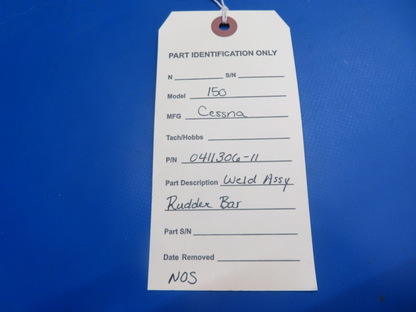 PART IDENTIFICATION ONLY
N S/N
Model 150
MFG Cessna
Tach/Hobbs
P/N 0411306-11
Part Description Weld Assy
Rudder Bar
Part S/N
Date Removed
NOS